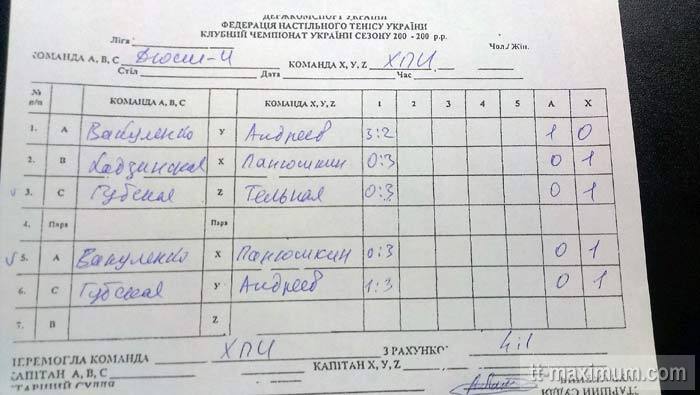 ДЕРЖКОМСПОРТ УКРАЇНИ
ФЕДЕРАЦІЯ НАСТІЛЬНОГО ТЕНІСУ УКРАЇНИ
КЛУБНИЙ ЧЕМПІОНАТ УКРАЇНИ СЕЗОНУ 200 -200 р.р.
Ліга Чол./ Жін.
КОМАНДА А, В, С КОМАНДА X, У, Z ХПИ
Стіл Дата Час
№ п/п КОМАНДА А, В, С КОМАНДА X, У, Z 1 2 3 4 5 А X
1. А Вакуленко У Андреев 3:2 1 0
2. В Хадзинская X Панюшкин 0:3 0 1
3. С Губская Z Тельная 0:3 0 1
4. Пара Пара
5. А Вакуленко X Панюшкин 0:3 0 1
6. С Губская У Андреев 1:3 0 1
7. В Z
ПЕРЕМОГЛА КОМАНДА ХПИ З РАХУНКО 4:1
КАПІТАН А, В, С КАПІТАН X, У, Z
СТАРШИЙ СУДДЯ
tt-maximum.com